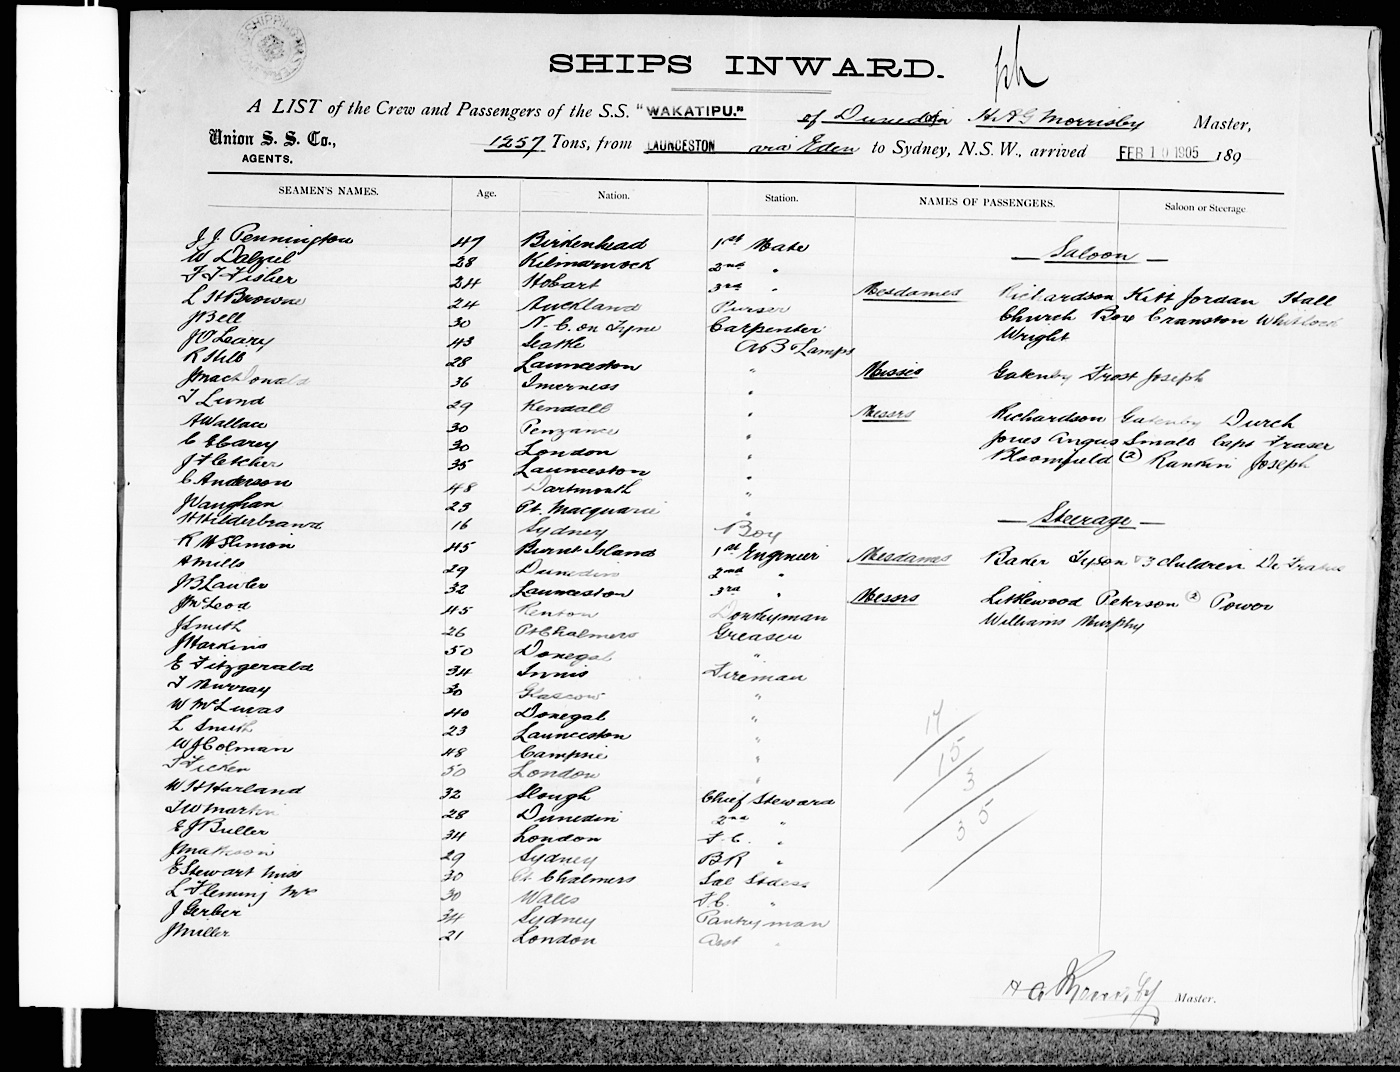 SHIPS INWARD.
A LIST of the Crew and Passengers of the S.S. "WAKATIPU." of Dunedin H A G Morrisby Master,
Union S. S. Co., AGENTS. 1257 Tons, from LAUNCESTON via Eden to Sydney, N.S.W., arrived FEB 10 1905 189
SEAMEN'S NAMES. Age. Nation. Station. NAMES OF PASSENGERS. Saloon or Steerage
J J Pennington 47 Birkenhead 1st Mate
W Dalziel 28 Kilmarnock 2nd "
T T Fisher 24 Hobart 3rd "
L H Browne 24 Auckland Purser
J Bell 30 N-C. on Tyne Carpenter
J O'Leary 43 Seattle AB & Lamps
R Hill 28 Launceston "
J MacDonald 36 Inverness "
T Lund 29 Kendall "
A Wallace 30 Penzance "
C E Carey 30 London "
J Fletcher 35 Launceston "
C Anderson 48 Dartmouth "
J Vaughan 23 Pt. Macquarie "
H Hilderbrand 16 Sydney Boy
R W Slimon 45 Burnt Island 1st Engineer
A Mills 29 Dunedin 2nd "
J B Lawler 32 Launceston 3rd "
J McLeod 45 Renton Donkeyman
J Smith 26 Pt Chalmers Greaser
J Harkins 50 Donegal "
E Fitzgerald 34 Innis Fireman
T Murray 30 Glascow "
W McLucas 40 Donegal "
L Smith 23 Launceston "
W J Colman 48 Campsie "
T Ficken 50 London "
W H Harland 32 Slough Chief Steward
T W Martin 28 Dunedin 2nd "
E J Buller 34 London F.C. "
J Mathson 29 Sydney BR "
E Stewart Miss 30 Pt Chalmers Sal Stdess
L Fleming Mrs 30 Wales F.C. "
J Gerber 34 Sydney Pantryman
J Miller 21 London Asst "
— Saloon —
Mesdames Richardson Kitt Jordan Hall
Church Box Cranston Whitlock
Wright
Misses Gatenby Frost Joseph
Messrs Richardson Gatenby Durch
Jones Angus Small Capt Fraser
Bloomfield (2) Rankin Joseph
— Steerage —
Mesdames Baker Tyson & 3 children
Messrs Littlewood Peterson (2) Power
Williams Murphy
17
15
3
35
H A G Morrisby Master.